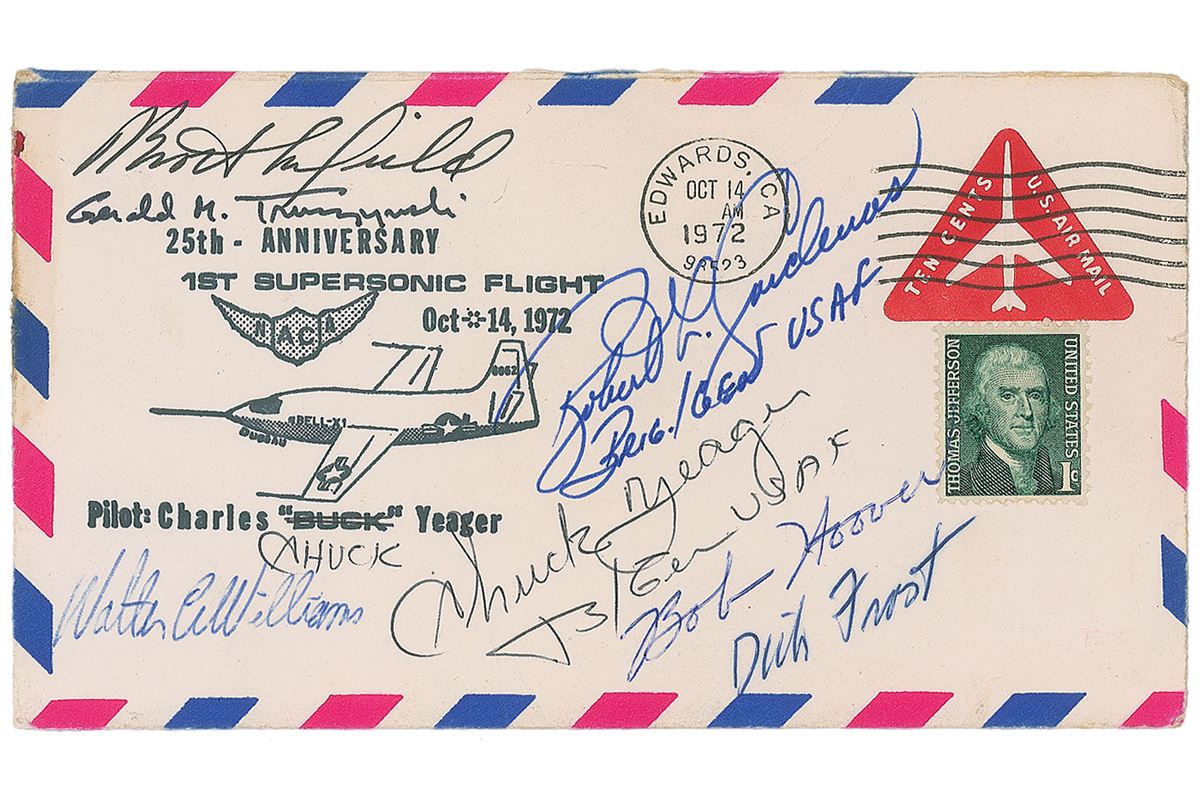 Gerald M. Truszynski
25th - ANNIVERSARY
1ST SUPERSONIC FLIGHT
Oct 14, 1972
NACA
6062
BELL-X1
Pilot: Charles "BUCK" Yeager
CHUCK
Walter C Williams
EDWARDS, CA
OCT 14
AM
1972
93523
Robert L. Cardenas
BRIG/GEN USAF
Chuck Yeager
B/Gen USAF
Bob Hoover
Dick Frost
TEN CENTS
U.S. AIR MAIL
THOMAS JEFFERSON
UNITED STATES
1¢